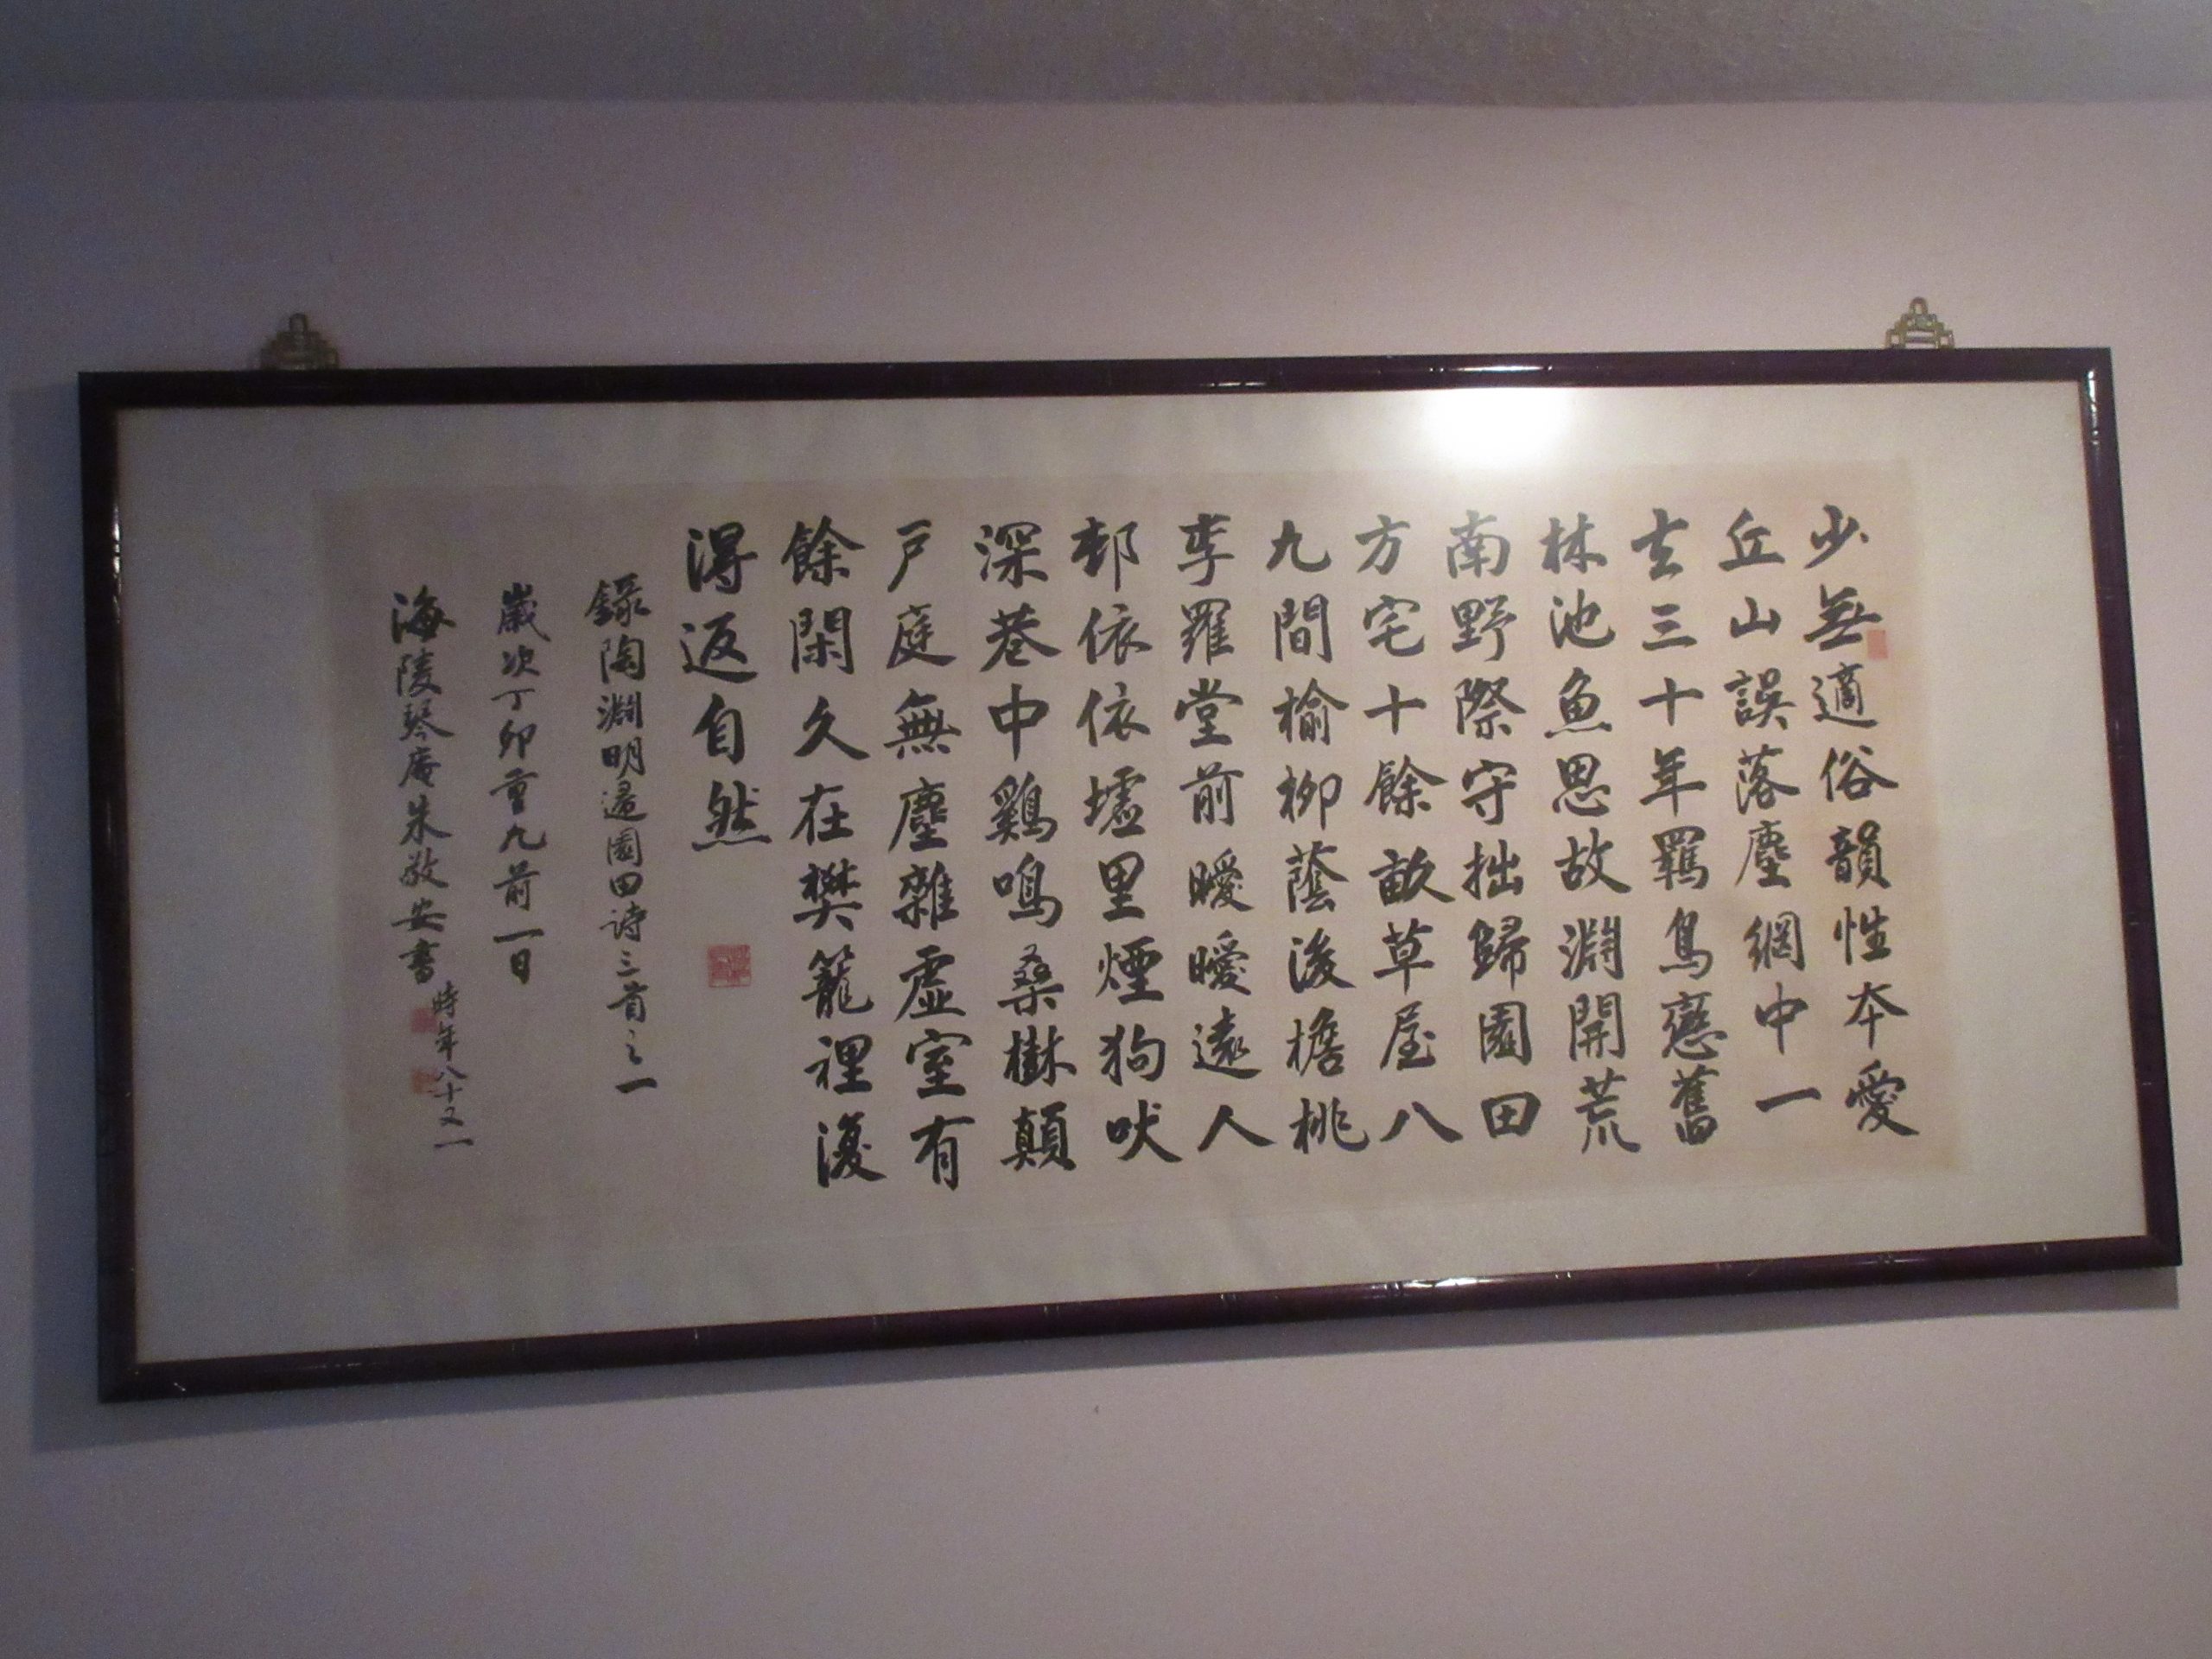 少無適俗韻性本愛
丘山誤落塵網中一
去三十年羈鳥戀舊
林池魚思故淵開荒
南野際守拙歸園田
方宅十餘畝草屋八
九間榆柳蔭後檐桃
李羅堂前曖曖遠人
邨依依墟里煙狗吠
深巷中鷄鳴桑樹顛
戶庭無塵雜虛室有
餘閑久在樊籠裡復
得返自然
錄陶淵明歸園田詩三首之一
歲次丁卯重九前一日
海陵琴庵朱敬安書
時年八十又一